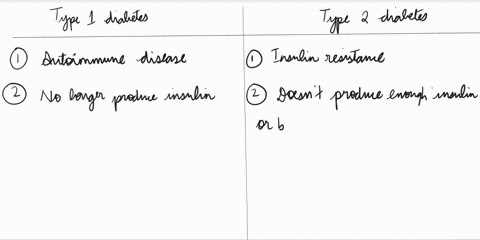 Type 1 diabetes
① Autoimmune disease
② No longer produce insulin
Type 2 diabetes
① Insulin resistance
② Doesn't produce enough insulin
or b